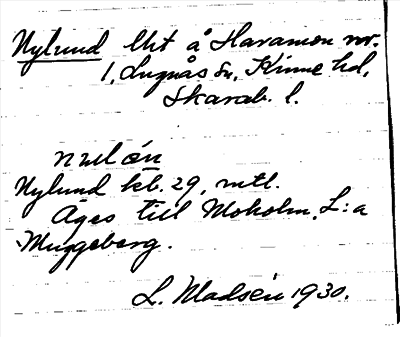 Nylund lht å Haramon nr.
1, Lugnås sn, Kinne hd,
Skarab. l.
nulón
Nylund kb. 29, mtl.
Äges till Moholm, L:a
Muggeberg.
L. Madsén 1930.